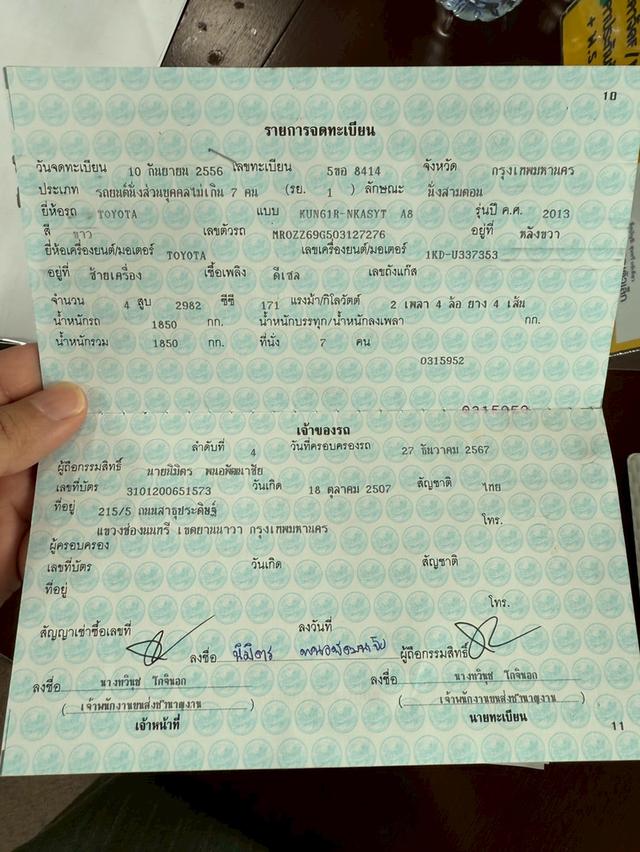 10
รายการจดทะเบียน
วันจดทะเบียน 10 กันยายน 2556 เลขทะเบียน 5ขอ 8414 จังหวัด กรุงเทพมหานคร
ประเภท รถยนต์นั่งส่วนบุคคลไม่เกิน 7 คน (รย. 1 ) ลักษณะ นั่งสามตอน
ยี่ห้อรถ TOYOTA แบบ KUN61R-NKASYT A8 รุ่นปี ค.ศ. 2013
สี ขาว เลขตัวรถ MR0ZZ69G503127276 อยู่ที่ หลังขวา
ยี่ห้อเครื่องยนต์/มอเตอร์ TOYOTA เลขเครื่องยนต์/มอเตอร์ 1KD-U337353
อยู่ที่ ซ้ายเครื่อง เชื้อเพลิง ดีเซล เลขถังแก๊ส
จำนวน 4 สูบ 2982 ซีซี 171 แรงม้า/กิโลวัตต์ 2 เพลา 4 ล้อ ยาง 4 เส้น
น้ำหนักรถ 1850 กก. น้ำหนักบรรทุก/น้ำหนักลงเพลา กก.
น้ำหนักรวม 1850 กก. ที่นั่ง 7 คน
0315952
0315952
เจ้าของรถ
ลำดับที่ 4 วันที่ครอบครองรถ 27 ธันวาคม 2567
ผู้ถือกรรมสิทธิ์ นายนิมิตร พนอพัฒนาชัย
เลขที่บัตร 3101200651573 วันเกิด 18 ตุลาคม 2507 สัญชาติ ไทย
ที่อยู่ 215/5 ถนนสาธุประดิษฐ์ โทร.
แขวงช่องนนทรี เขตยานนาวา กรุงเทพมหานคร
ผู้ครอบครอง
เลขที่บัตร วันเกิด สัญชาติ
ที่อยู่
โทร.
สัญญาเช่าซื้อเลขที่ ลงวันที่
ลงชื่อ นิมิตร พนอพัฒนาชัย ผู้ถือกรรมสิทธิ์
ลงชื่อ นางทวินุช โกจินอก ลงชื่อ นางทวินุช โกจินอก
(เจ้าพนักงานขนส่งชำนาญงาน) (เจ้าพนักงานขนส่งชำนาญงาน)
เจ้าหน้าที่ นายทะเบียน
11